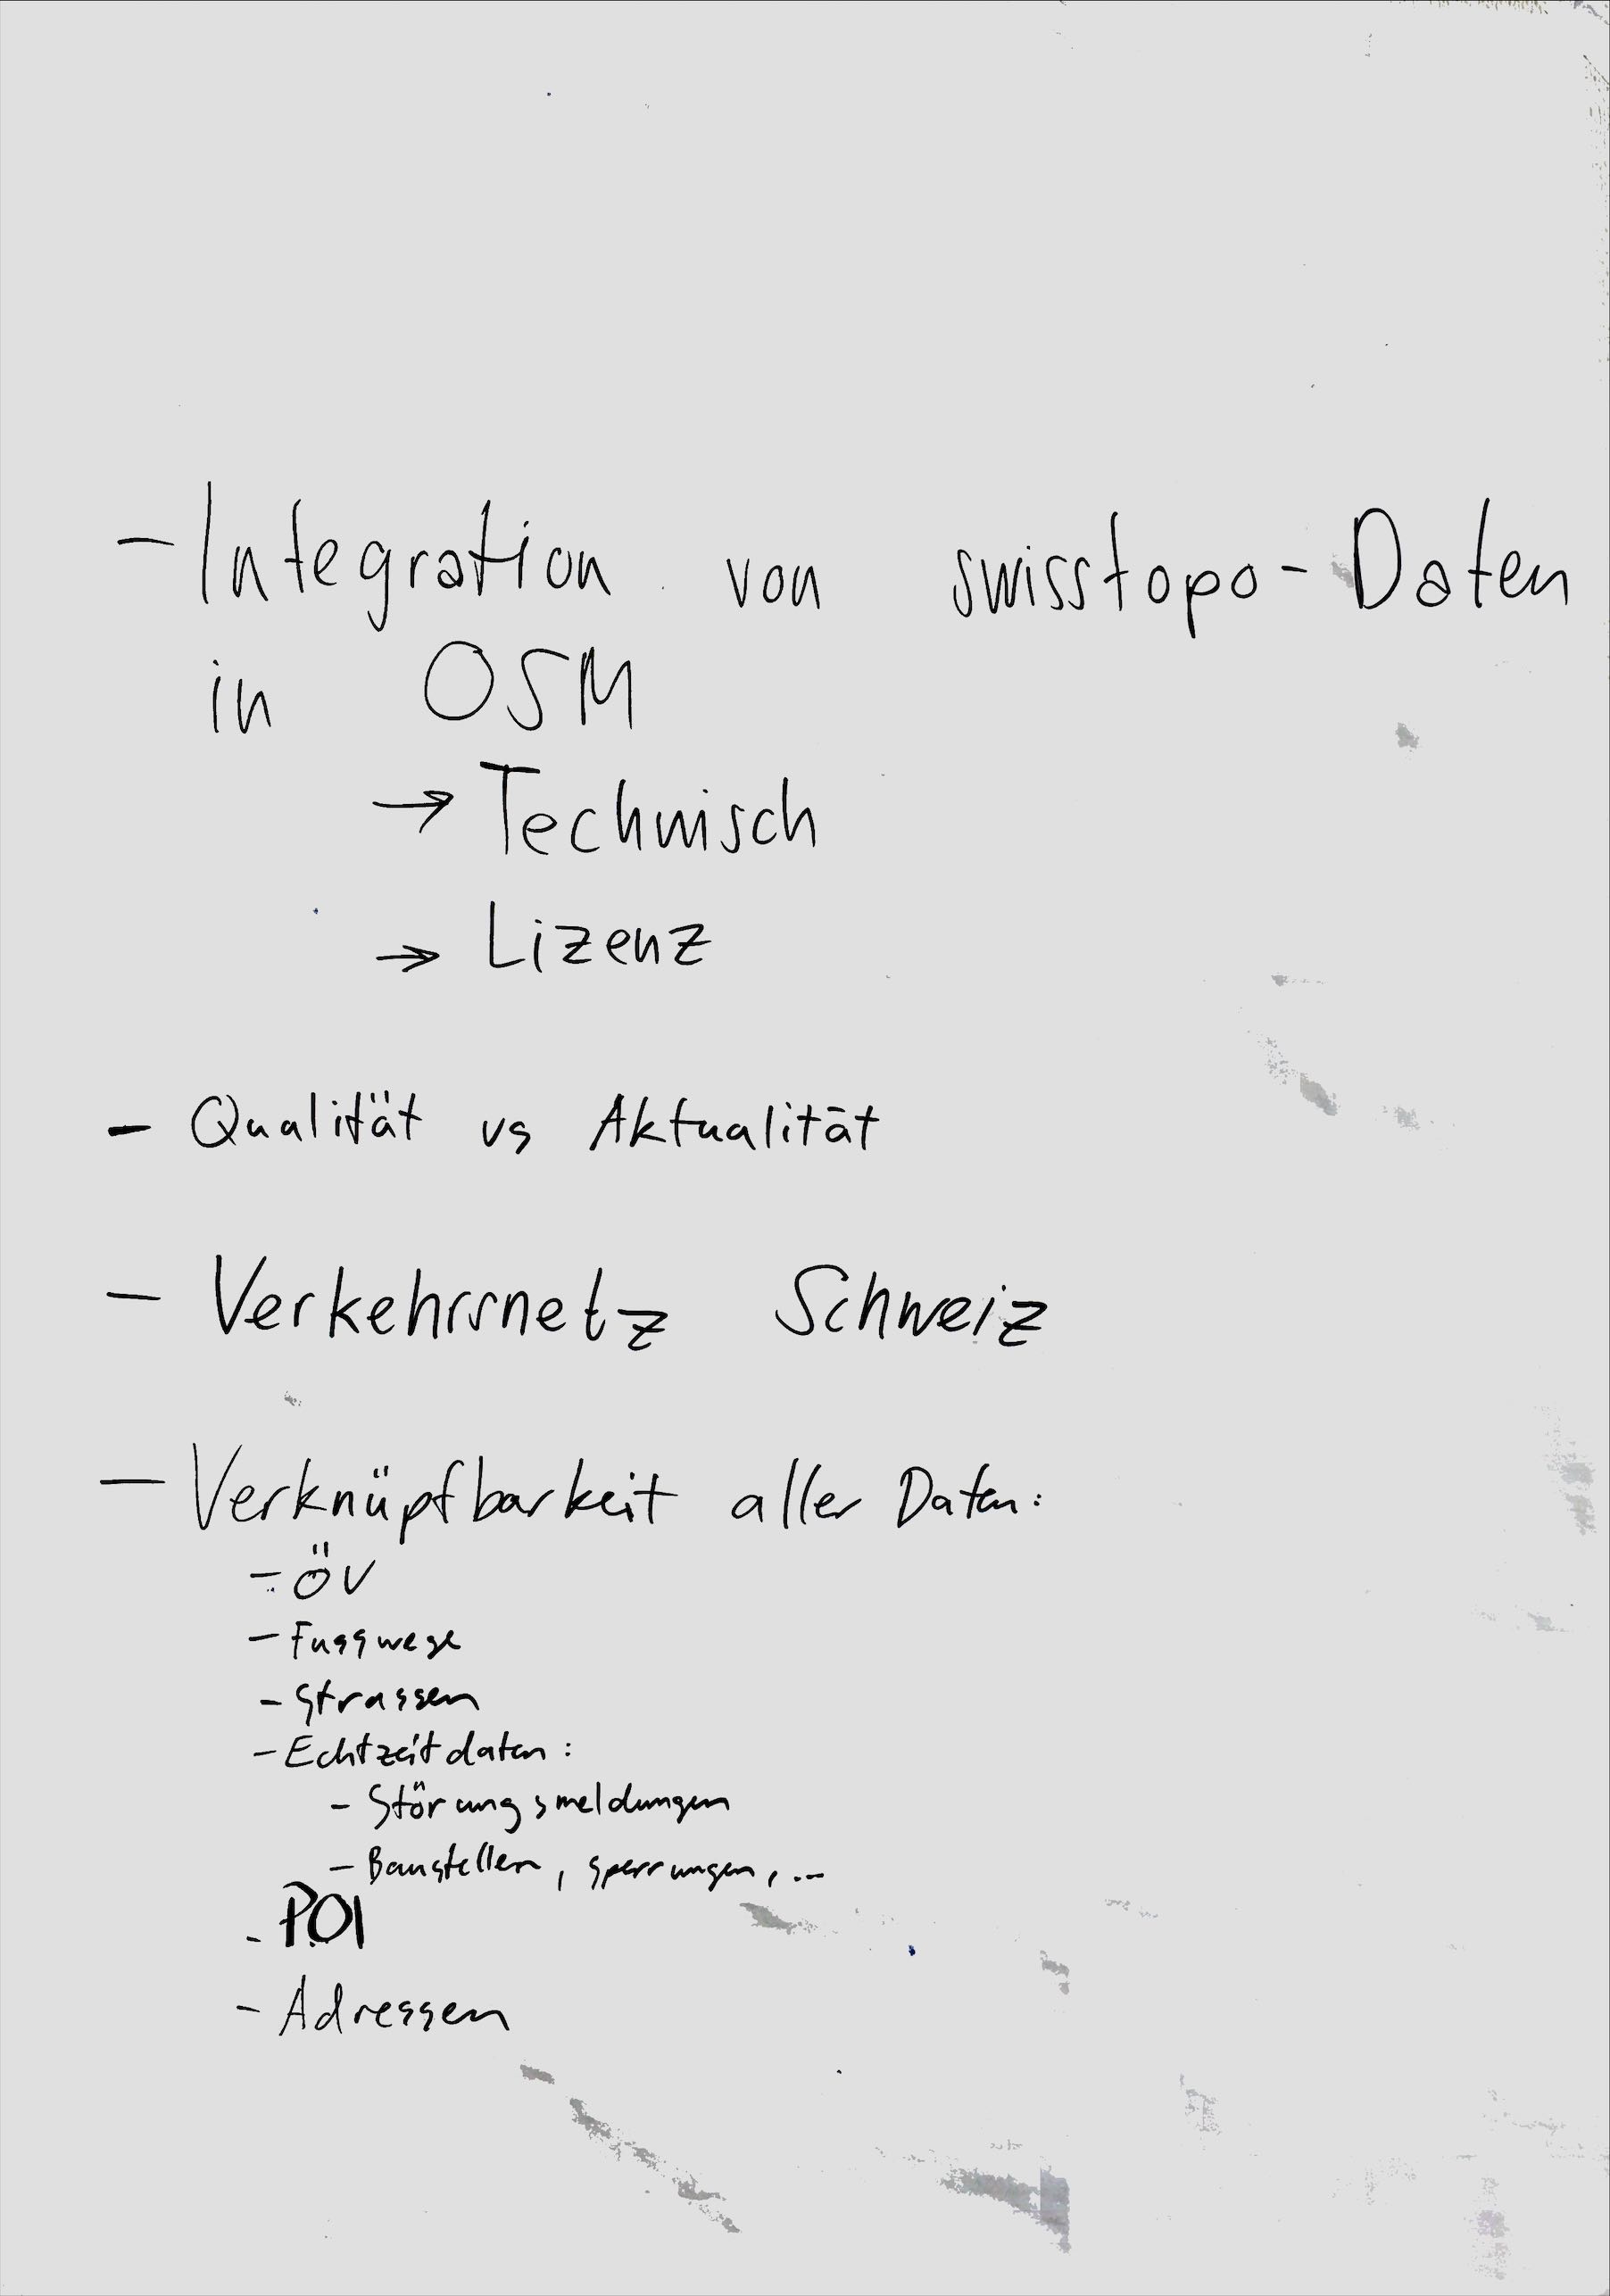 - Integration von swisstopo-Daten
in OSM
→ Technisch
→ Lizenz
- Qualität vs Aktualität
- Verkehrsnetz Schweiz
- Verknüpfbarkeit aller Daten:
- ÖV
- Fusswege
- Strassen
- Echtzeitdaten:
- Störungsmeldungen
- Baustellen, sperrungen, ...
- POI
- Adressen